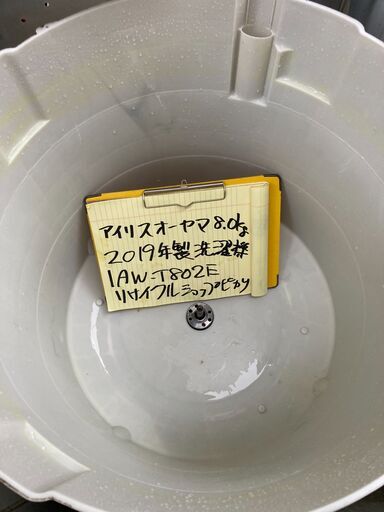 アイリスオーヤマ8.0kg
2019年製洗濯機
IAW-T802E
リサイクルショップピカリ